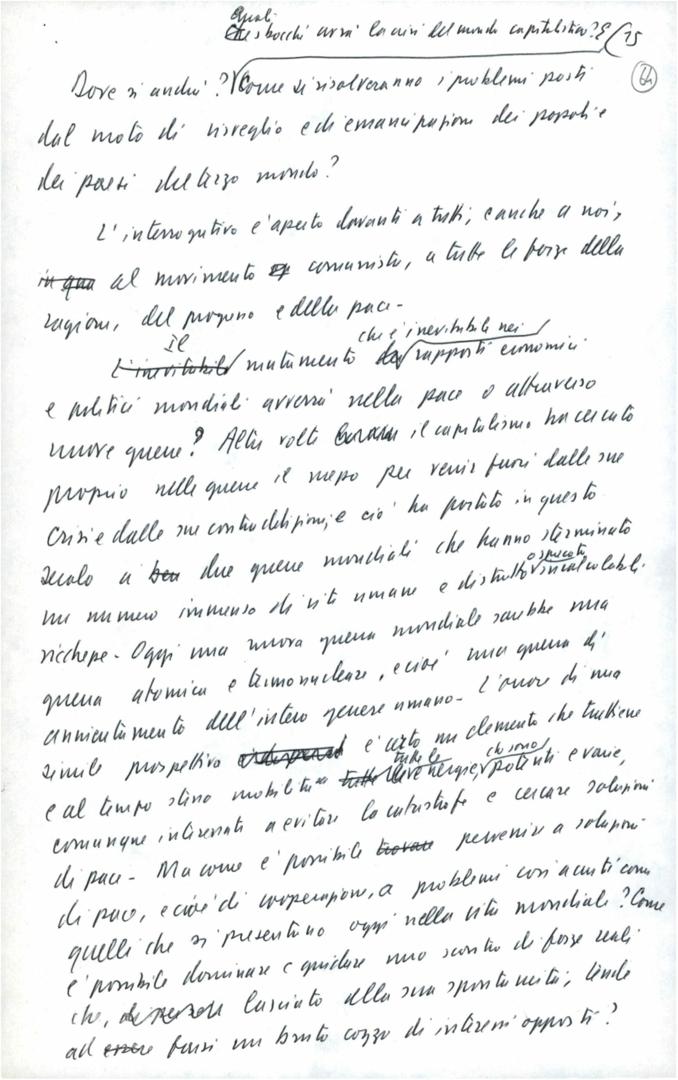 Quali
Che sbocchi avrà la crisi del mondo capitalistico? E 75
64
Dove si andrà? Come si risolveranno i problemi posti
dal moto di risveglio e di emancipazione dei popoli e
dei paesi del terzo mondo?
L'interrogativo è aperto davanti a tutti, e anche a noi,
in qua al movimento comunista, a tutte le forze della
ragione, del progresso e della pace-
Il che è inevitabile nei
L'inevitabile mutamento dei rapporti economici
e politici mondiali avverrà nella pace o attraverso
nuove guerre? Altre volte il capitalismo ha cercato
proprio nelle guerre il mezzo per venir fuori dalle sue
crisi e dalle sue contraddizioni, e ciò ha portato in questo
secolo a ben due guerre mondiali che hanno sterminato
un numero immenso di vite umane e distrutto o sprecato incalcolabili
ricchezze- Oggi una nuova guerra mondiale sarebbe una
guerra atomica e termonucleare, e cioè una guerra di
annientamento dell'intero genere umano- L'orrore di una
simile prospettiva è certo un elemento che trattiene
tutte le che sono
e al tempo stesso mobilita tutte le energie, potenti e varie,
comunque interessati a evitare la catastrofe e cercare soluzioni
di pace- Ma come è possibile trovare pervenire a soluzioni
di pace, e cioè di cooperazione, a problemi così acuti come
quelli che si presentano oggi nella vita mondiale? Come
è possibile dominare e guidare uno scontro di forze reali
che, lasciato alla sua spontaneità, tende
ad essere farsi un bruto cozzo di interessi opposti?